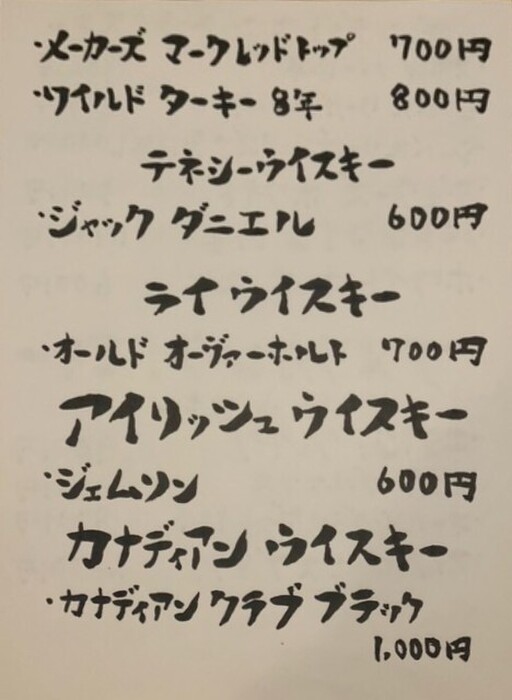 ・メーカーズ マークレッドトップ 700円
・ワイルド ターキー 8年 800円
テネシーウイスキー
・ジャック ダニエル 600円
ライ ウイスキー
・オールド オーヴァーホルト 700円
アイリッシュ ウイスキー
・ジェムソン 600円
カナディアン ウイスキー
・カナディアン クラブ ブラック
1,000円